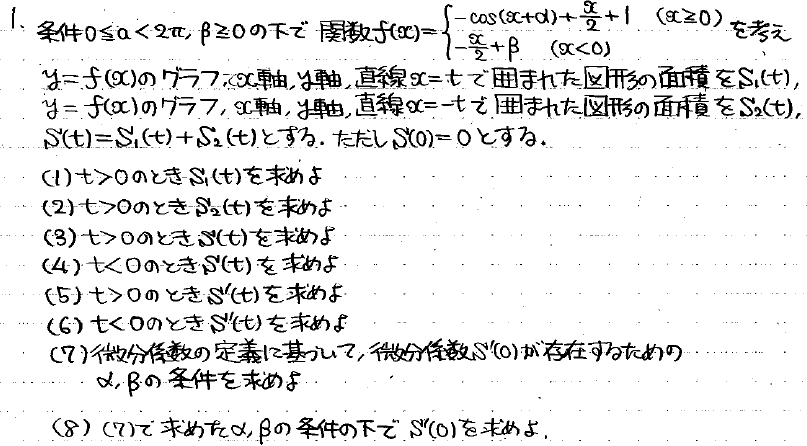 1. 条件0≦α<2π, β≧0の下で 関数f(x)={-cos(x+α)+x/2+1 (x≧0)
-x/2+β (x<0) を考え
y=f(x)のグラフ, x軸, y軸, 直線x=tで囲まれた図形の面積をS₁(t),
y=f(x)のグラフ, x軸, y軸, 直線x=-tで囲まれた図形の面積をS₂(t),
S(t)=S₁(t)+S₂(t)とする. ただしS(0)=0とする.
(1) t>0のときS₁(t)を求めよ
(2) t>0のときS₂(t)を求めよ
(3) t>0のときS(t)を求めよ
(4) t<0のときS(t)を求めよ
(5) t>0のときS'(t)を求めよ
(6) t<0のときS'(t)を求めよ
(7) 微分係数の定義に基づいて, 微分係数S'(0)が存在するための
α, βの条件を求めよ
(8) (7)で求めたα, βの条件の下で S'(0)を求めよ.